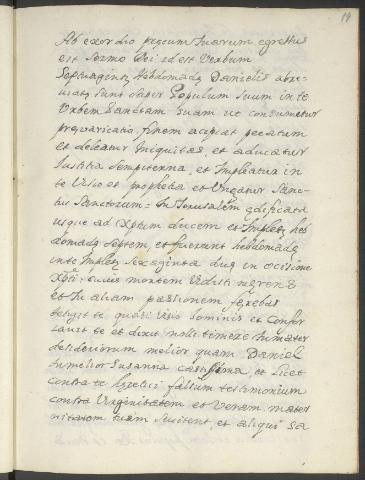 14
Ab exordio precum tuarum egressus
est sermo Dei id est Verbum
Septuagintę hebdomadę Danielis abre-
uiatę sunt super Populum suum in te
Urbem Sanctam suam ut consumetur
pręvaricatio, finem acipiat pecatum
et deleatur iniquitas, et aducatur
Iustitia sempiterna, et impleatur in
te Visio et prophetia et Ungatur Sanc-
tus Sanctorum = In Jerusalem ędificata
usque ad Xptum ducem et impletę heb
domadę septem, et fuerunt hebdomadę
in te impletę sexaginta duę in ocisione
Xpti = cuius mortem vidisti męrens
et in aliam passionem ferebas
tetigit te quasi visio hominis et confor
tauit te et dixit noli timere
desideriorum melior quam Daniel
humilior Susanna castissima, et licet
contra te falsum testimonium
contra Virginitatem et Veram mater
nitatem tuam et aliqui Sa